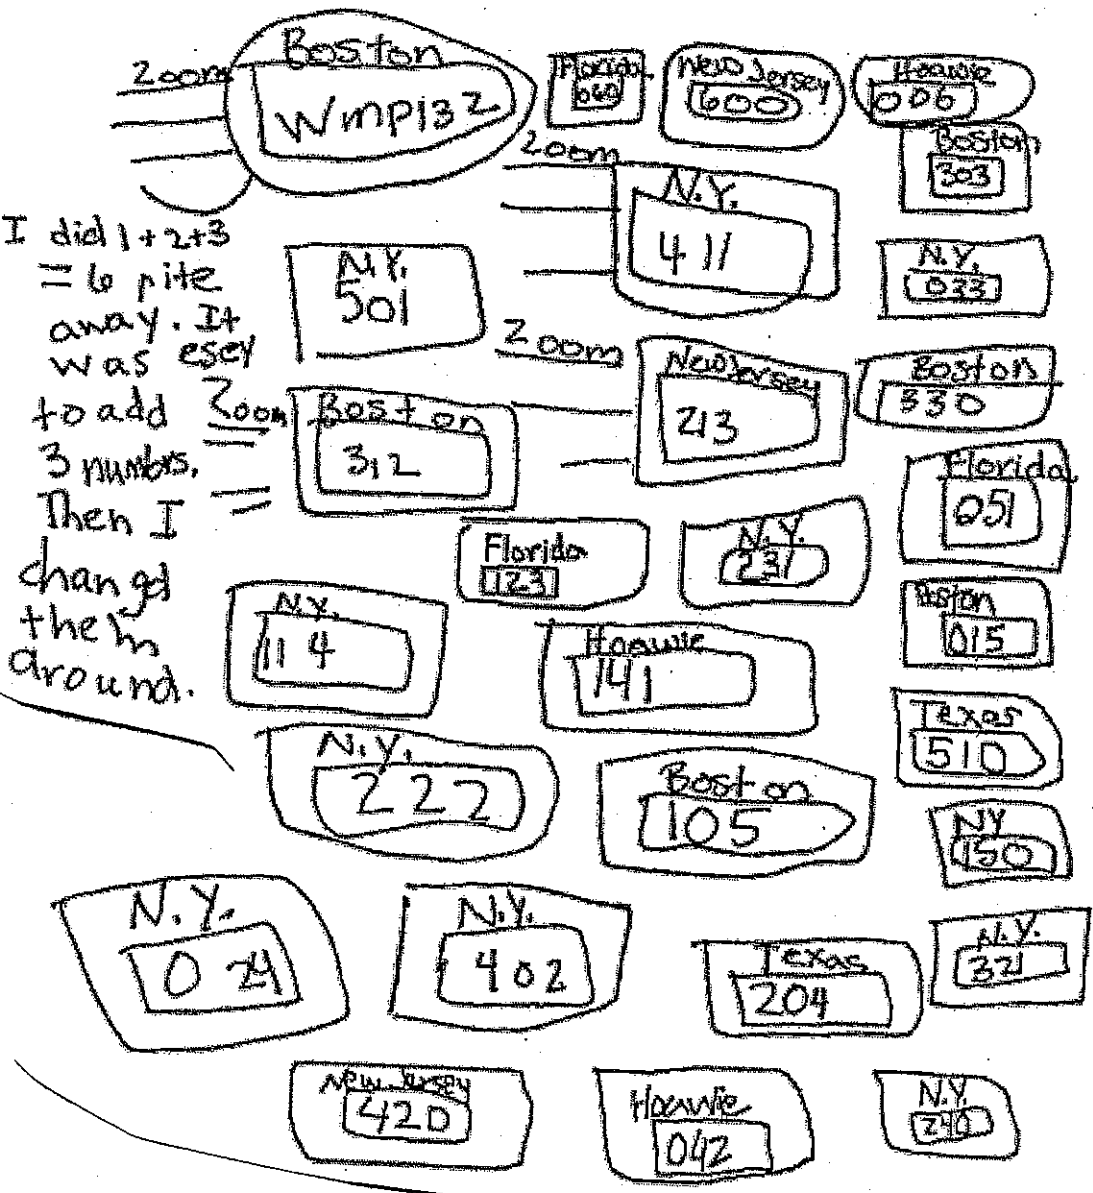 Zoom
Boston
Wmp132
Florida
060
New Jersey
600
Hoawie
006
Boston
303
Zoom
N.Y.
411
N.Y.
033
I did 1+2+3
= 6 rite
away. It
was esey
to add
3 numbrs.
Then I
changd
them
around.
N.Y.
501
Zoom
New Jersey
213
Boston
330
Zoom
Boston
312
Florida
051
Florida
123
N.Y.
231
Boston
015
N.Y.
114
Hoawie
141
Texas
510
N.Y.
222
Boston
105
NY
150
N.Y.
024
N.Y.
402
Texas
204
N.Y.
321
New Jersey
420
Hoawie
042
N.Y.
240